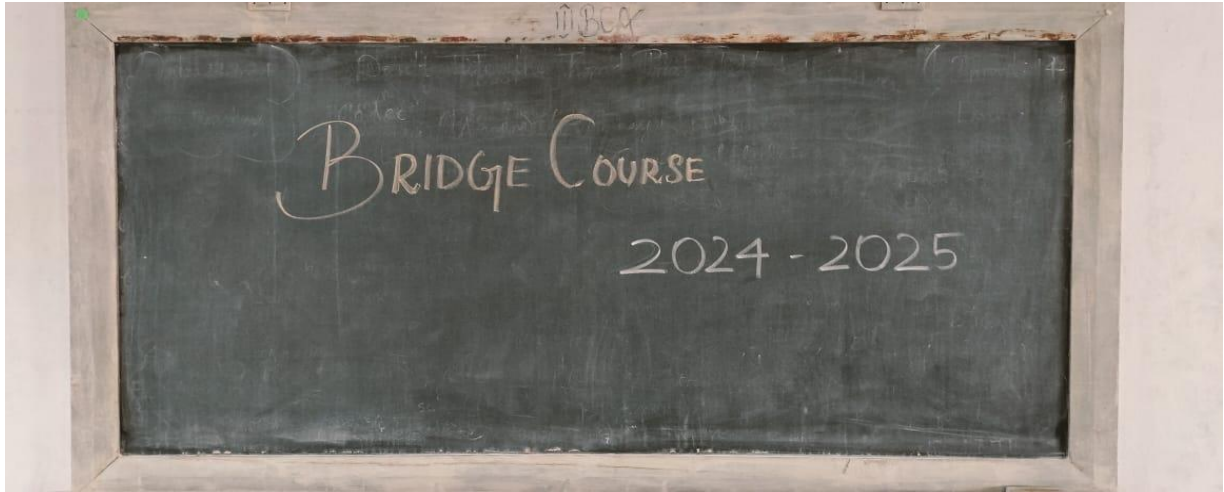 III BCA
BRIDGE COURSE
2024 - 2025